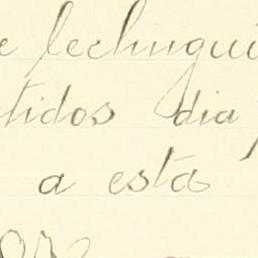 e lechingui
tidos dia
a esta